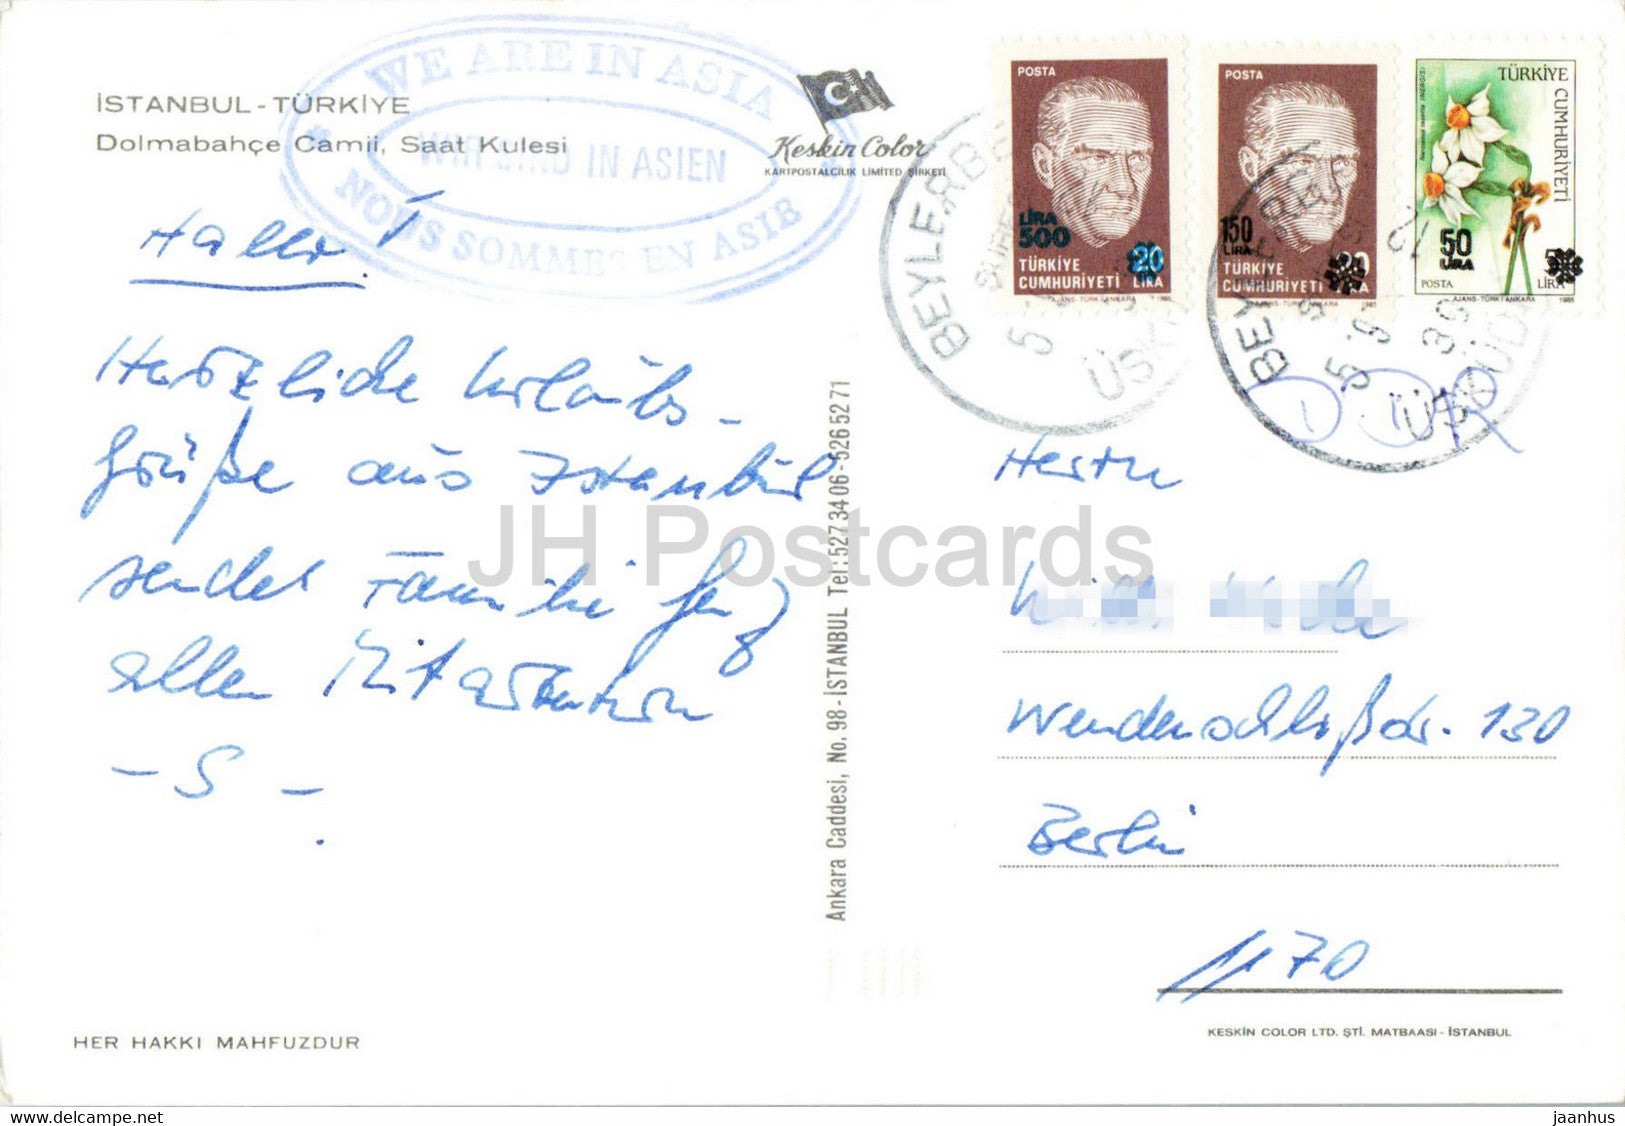 İSTANBUL - TÜRKİYE
Dolmabahçe Camii, Saat Kulesi
WE ARE IN ASIA
WIR SIND IN ASIEN
NOUS SOMMES EN ASIE
Keskin Color
KARTPOSTALCILIK LIMITED ŞİRKETİ
POSTA
LİRA
500
20
TÜRKİYE
CUMHURİYETİ LİRA
AJANS-TÜRK/ANKARA 1985
POSTA
150
LİRA
20
TÜRKİYE
CUMHURİYETİ LİRA
AJANS-TÜRK/ANKARA 1985
TÜRKİYE
CUMHURİYETİ
50
LİRA
POSTA LİRA
AJANS-TÜRK/ANKARA 1985
BEYLERBEYİ
ÜSKÜDAR
DDR
Hallo!
Herzliche Urlaubs-
grüße aus Istanbul
sendet Familie
allen Mitarbeitern
- S -
Ankara Caddesi, No. 98 - İSTANBUL Tel: 527 34 06 - 526 52 71
Herrn
Wendenschloßstr. 130
Berlin
1170
HER HAKKI MAHFUZDUR
KESKİN COLOR LTD. ŞTİ. MATBAASI - İSTANBUL
JH Postcards
delcampe.net
jaanhus